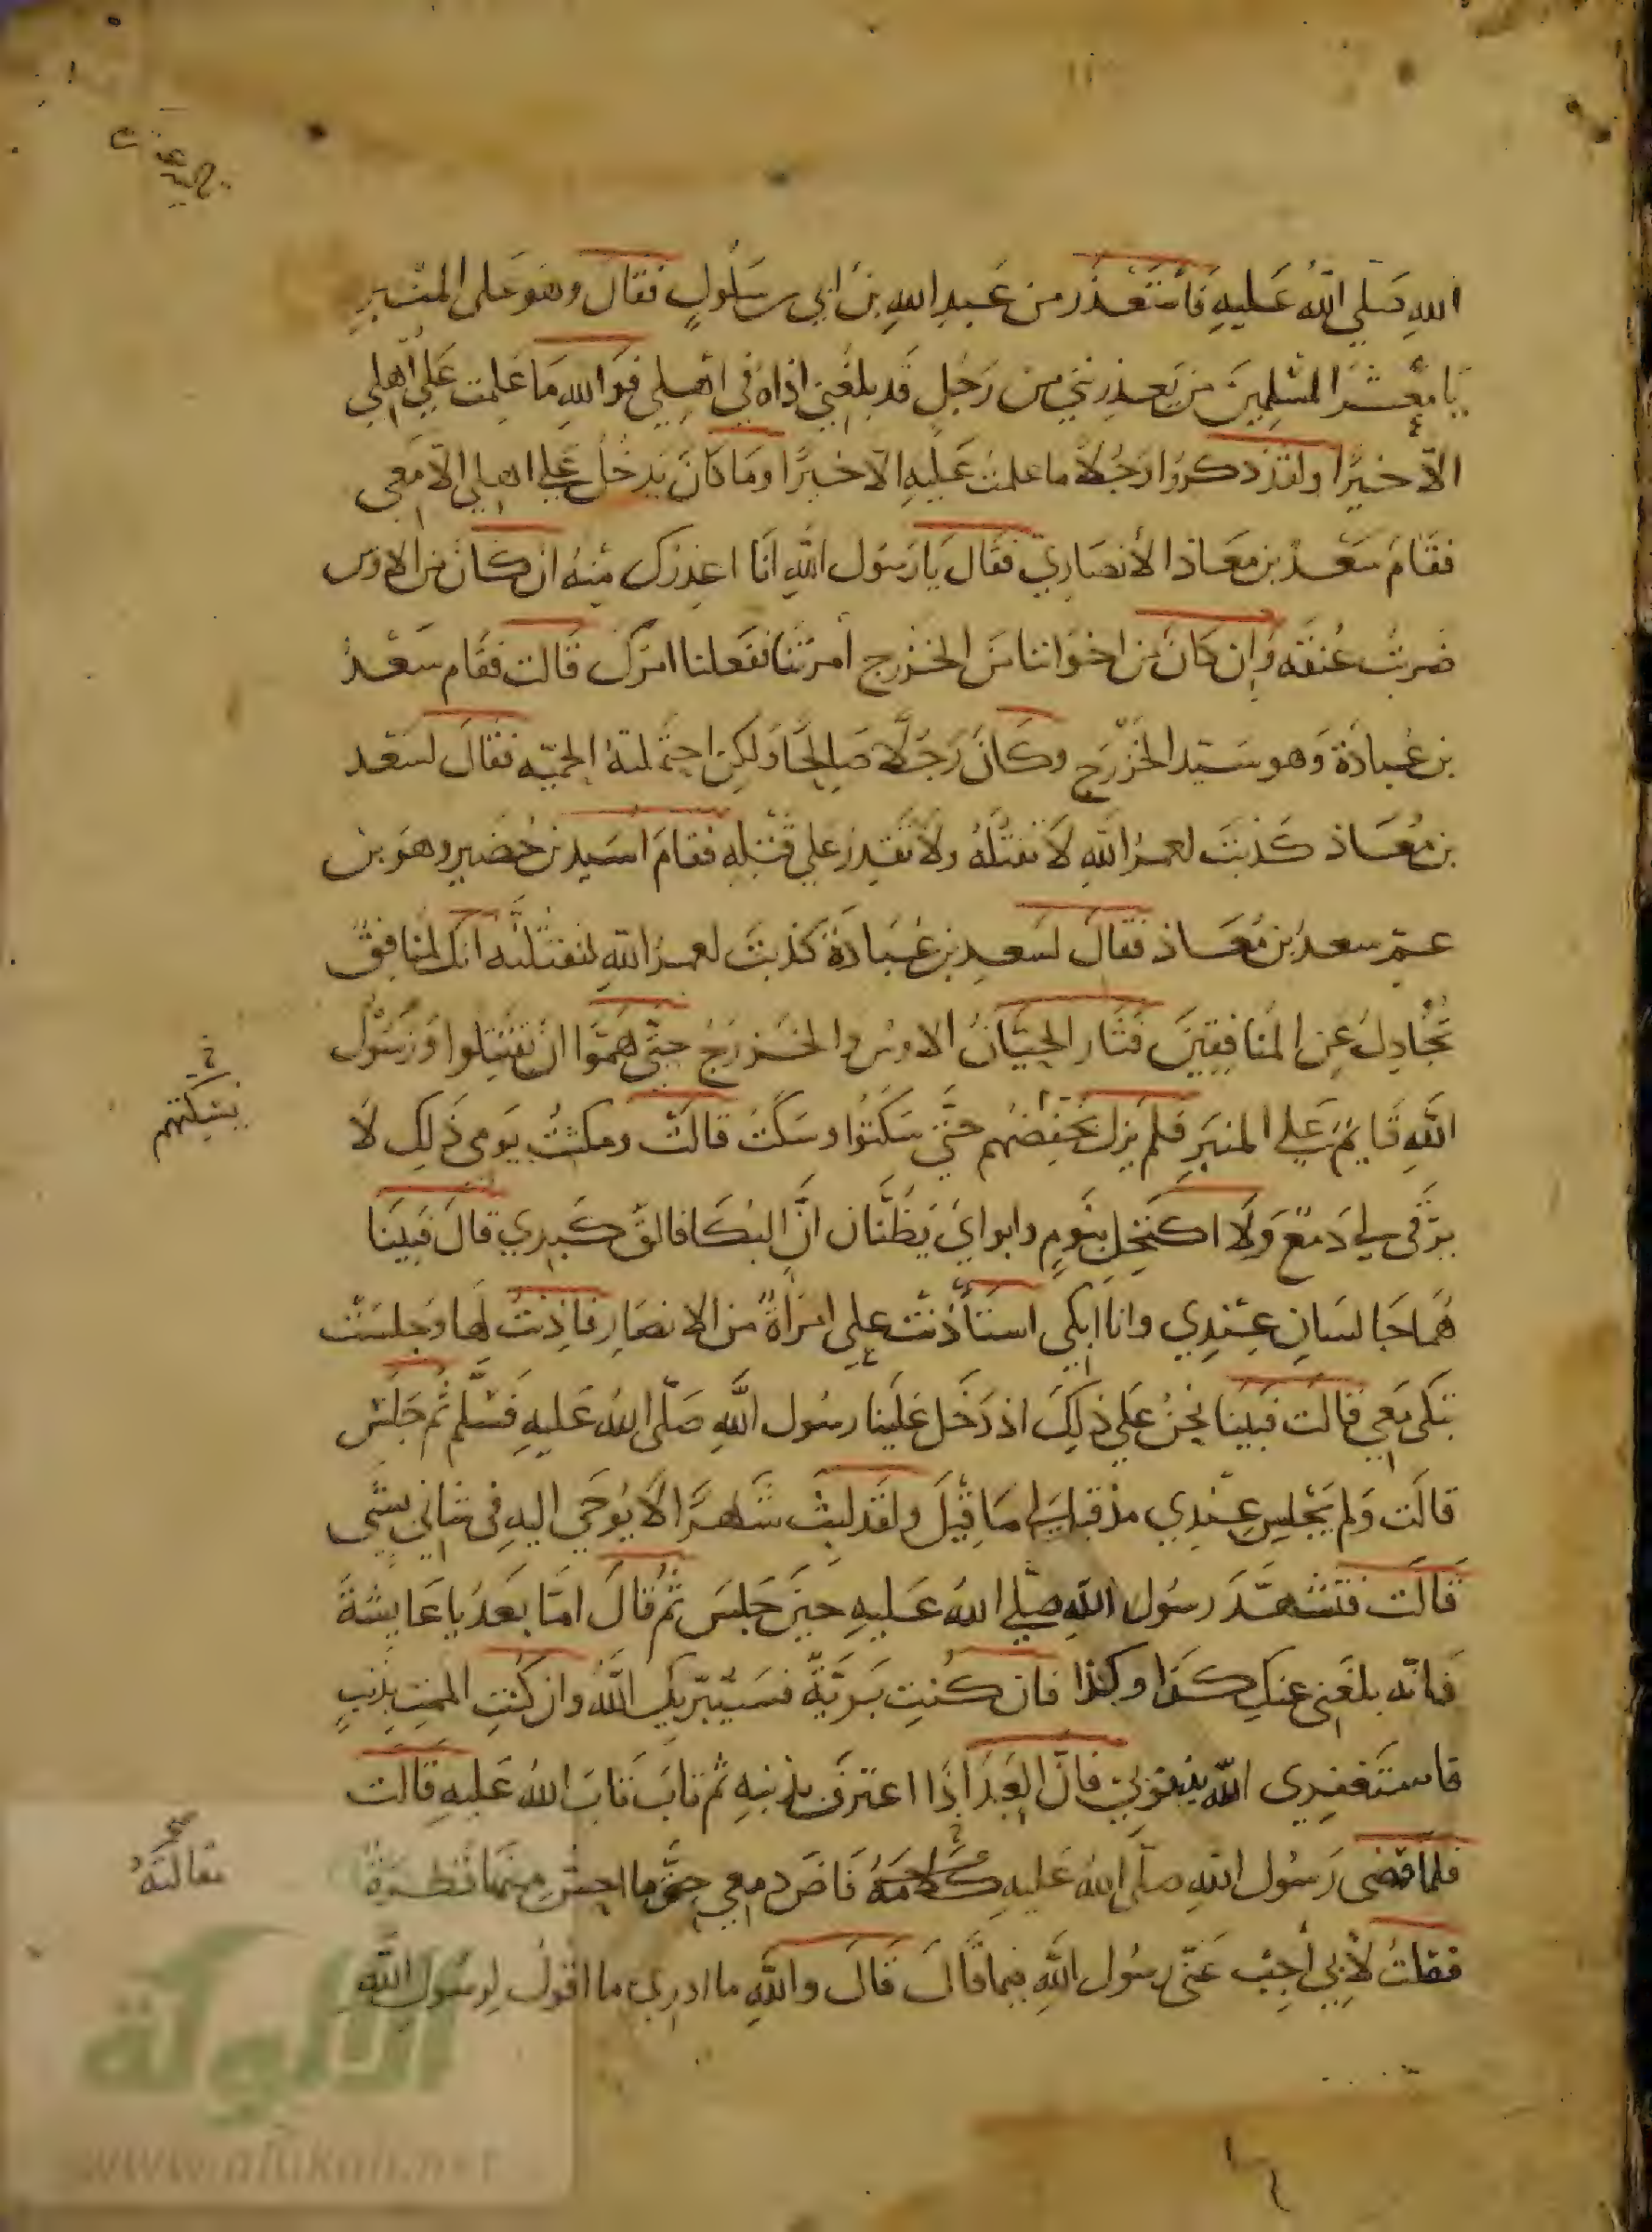 الله صَلي الله عَليهِ فَاسْتَعْذَر من عَبدِ اللهِ بن ابي سَلُولٍ فقال وهو عَلى المنْبرِ
يَا معْشرَ المسْلِمينَ من يَعذِرني من رَجُلٍ قَد بلغَني اذاهُ في اهْلي فوَاللهِ مَا عَلِمت عَلي اهْلي
الّا خيرًا ولقد ذكروُا رَجُلًا ما علمت عَليهِ الّا خيرًا ومَا كانَ يَدخُل عَلي اهلي الّا مَعِي
فقَامَ سَعْدُ بن معَاذ الأنصَاريّ فقَالَ يَا رَسُول اللهِ انَا اعذِرُك منِهُ ان كَانَ من الاوس
ضَربتُ عُنقَه وَإن كانَ من اخوَاننا منَ الخزرج أمرتَنا ففَعلنا امرَك قالت فقَام سَعْدُ
بن عُبادَة وَهو سَيّد الخَزْرَج وكَانَ رَجُلًا صَالحًا وَلكِن احتمَلتهُ الحميّه فقَالَ لسَعْد
بن مُعَاذ كَذبتَ لعمرُ اللهِ لَا تقتلُهُ ولَا تقدِرُ علي قَتْلِهِ فقامَ اسَيدُ بن حُضَير وهوَ بن
عمّ سعدُ بن مُعَاذ فقَالَ لسَعدِ بن عُبَادَة كذبتَ لعمرُ اللهِ لنقتُلنَّه انك لمنَافِقٌ
تُجَادِلُ عَن المُنافِقينَ فثَار الحيّانُ الاوسُ والخَزرَجُ حتّى هَمّوا انْ يَقتَتِلوا وَرَسُول
اللهِ قايمٌ عَلي المنبَرِ فلم يزل يُخفِضُهُم حتَّى سَكتُوا وسَكَتَ قالَتْ ومكثتُ يَومي ذَلِك لَا
يرَقى لي دَمْعٌ وَلَا اكتحِل بنَومٍ وابوايَ يَظُنَّان انَّ البُكَا فالقٌ كبدي قالَ فبَينَا
هُمَا جَالسَانِ عِنْدِي وانا ابكي استَأذنَت علي امرَأةٌ من الانصَارِ فاذِنتُ لَها وَجلسَت
تبكي مَعي قالَت فبَينَا نحنُ عَلي ذلِكَ اذ دَخَل عَلَينا رسُول اللهِ صَلّى اللهُ عَليهِ فَسَلَّم ثُم جَلَسَ
قالَت وَلم يَجْلِس عِنْدِي مذ قيل لي مَا قِيْلَ ولقَد لبِث شَهرًا لَا يُوحَي اليهِ في شاني بشي
قَالَت فتَشَهّدَ رسُول اللهِ صَلّي اللهُ عَليهِ حينَ جَلسَ ثُم قَالَ امّا بَعدُ يا عَايشَةَ
فَانّه بلغَني عنكِ كذَا وكذا فان كُنتِ بَريّةً فسَيُبَرّيكِ اللهُ وان كُنتِ المَمتِ بذَنبٍ
فاستَغفِري اللهَ وتوبي فانّ العَبدَ إذَا اعترفَ بذنبِهِ ثم تابَ تَابَ اللهُ عَليهِ قَالَت
فلما قضى رَسُول اللهِ صلّى اللهُ عَليهِ كلامَهُ قَلصَ دمعي حتّى ما احِسّ مِنهَا قَطرَةً
فقلتُ لأبي أجِبْ عَنّي رسُول اللهِ فيما قَالَ قَالَ واللهِ ما ادري ما اقولُ لِرسُول اللهِ
يسكتهم
مقالتهُ
الألوكة
www.alukah.net